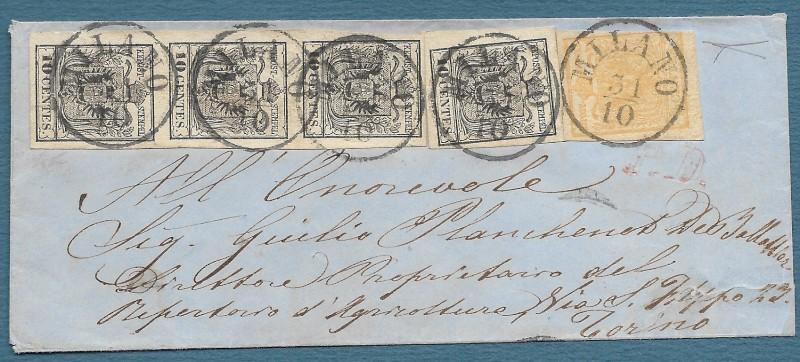 10 CENTES. 10 CENTES. 10 CENTES. 10 CENTES.
MILANO
31
10
P.D.
All' Onorevole
Sig. Giulio Planchenet
Direttore Proprietario del
Repertorio d'Agricoltura, Via S. Filippo 23.
Torino